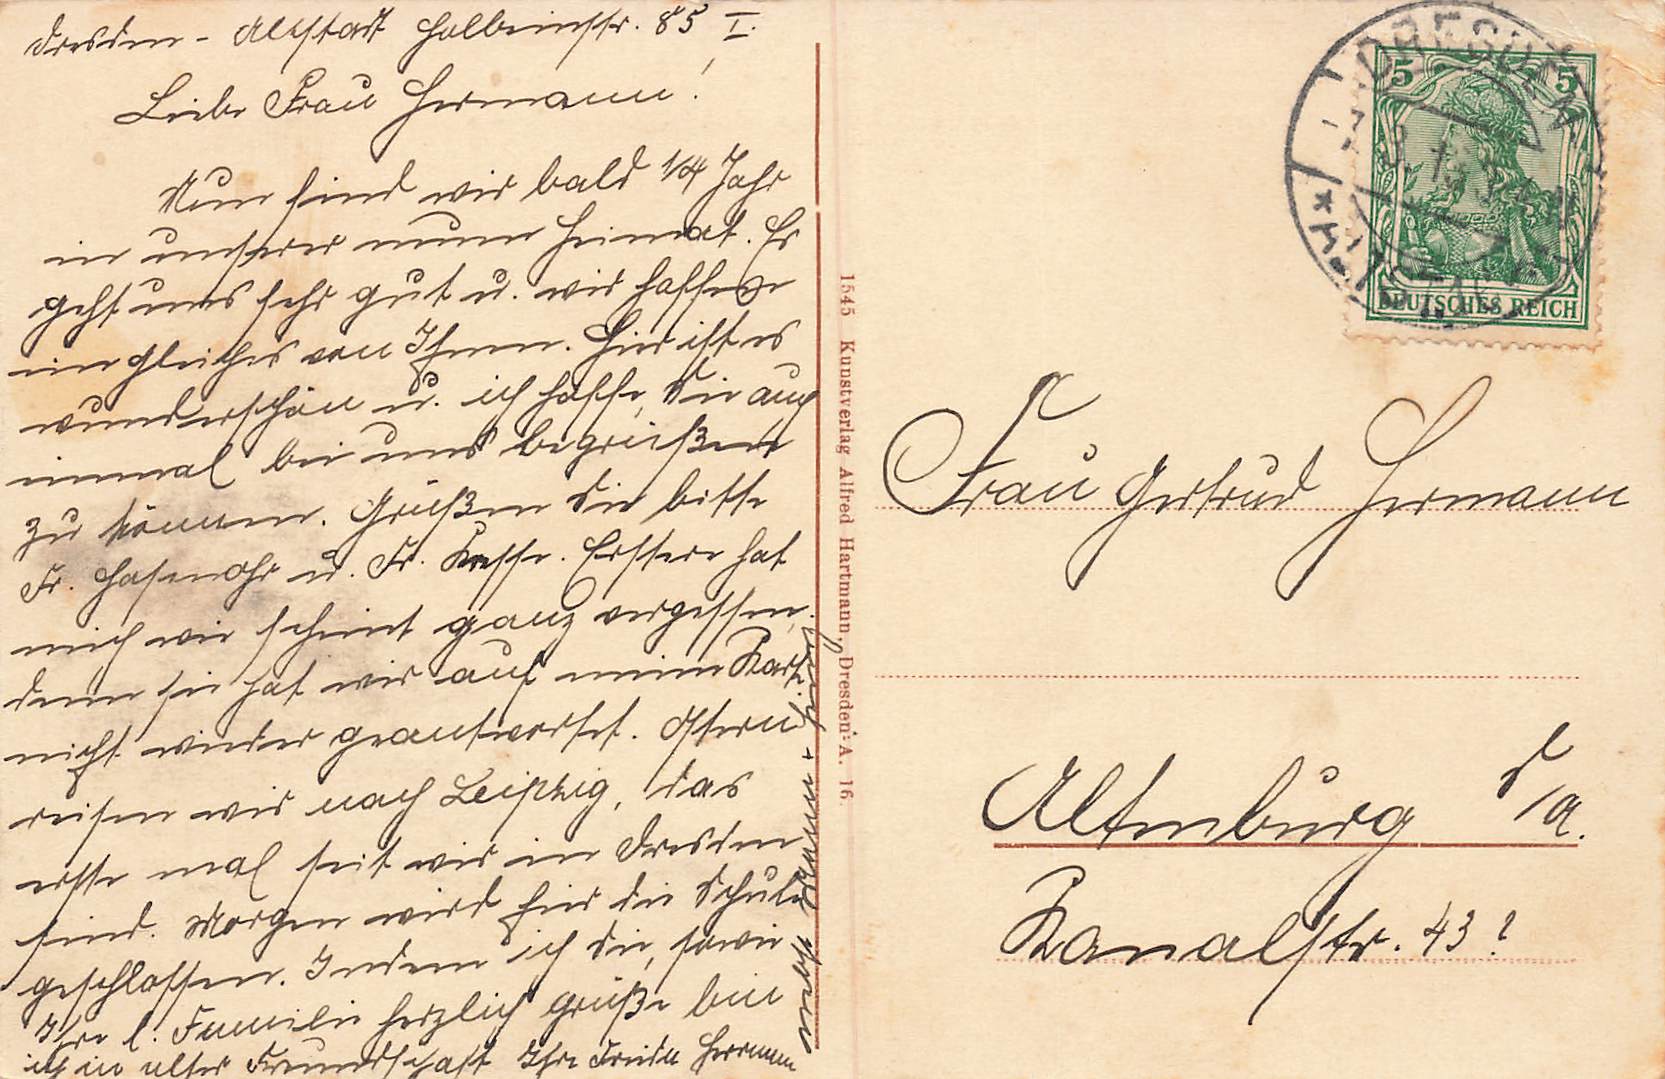 Dresden - Altstadt Holbeinstr. 85 I.
Liebe Frau Hermann!
Nun sind wir bald 1/4 Jahr
in unserer neuen Heimat. Es
geht uns sehr gut u. wir hoffen
ein gleiches von Ihnen. Hier ist es
wunderschön u. ich hoffe, Sie auch
einmal bei uns begrüßen
zu können. Grüßen Sie bitte
Fr. Hasenohr u. Fr. Kresse. Erstere hat
mich wie scheint ganz vergessen,
denn sie hat mir auf meine Karte
nicht wieder geantwortet. Ostern
reisen wir nach Leipzig, das
erste mal seit wir in Dresden
sind. Morgen wird hier die Schule
geschlossen. Indem ich Sie, sowie
Ihre l. Familie herzlich grüße bin
ich in alter Freundschaft Ihre Frieda Herrmann
nebst Mann
1545 Kunstverlag Alfred Hartmann, Dresden-A. 16.
DRESDEN
5 5
DEUTSCHES REICH
Frau Gertrud Hermann
Altenburg S/A.
Kanalstr. 43?